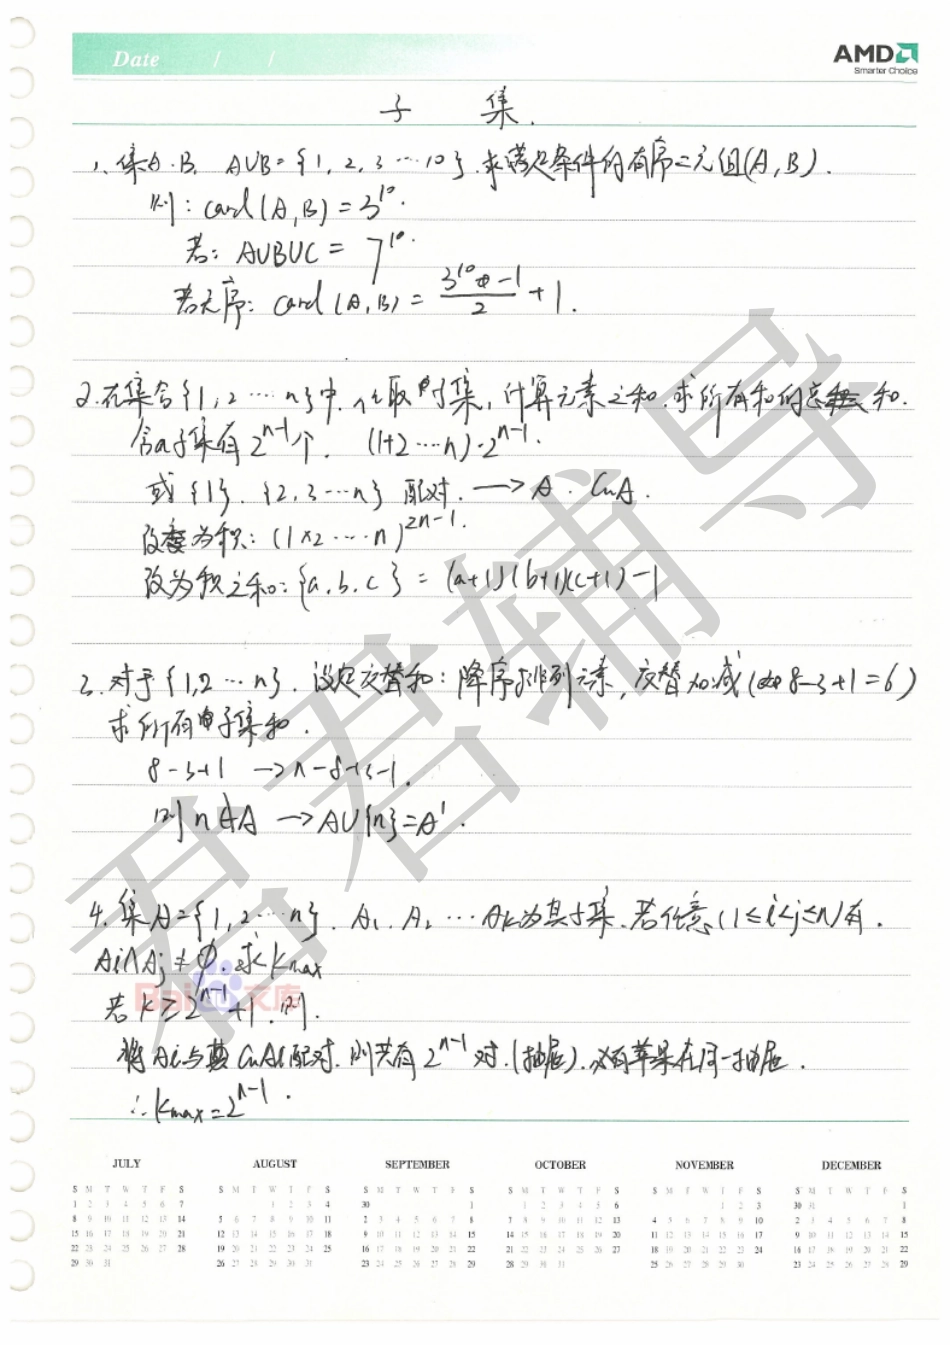 Date / /
AMD
Smarter Choice
子 集.
1、集A.B. A∪B={1,2,3…10}.求满足条件的有序二元组(A,B).
则:card(A,B)=3^10.
若:A∪B∪C=7^10.
若无序:card(A,B)=(3^10-1)/2+1.
2.在集合{1,2…n}中.任取子集,计算元素之和.求所有和的总和.
含a子集有2^{n-1}个. (1+2…n)·2^{n-1}.
或{1}.{2,3…n}配对.→A.CuA.
改变为积:(1×2…n)^{2n-1}.
改为积之和:{a.b.c}=(a+1)(b+1)(c+1)-1
3.对于{1,2…n}.设定交替和:降序排列元素,交替加减(如8-3+1=6)
求所有子集和.
8-3+1→n-8+3-1.
则n∉A→A∪{n}=A'.
4.集A={1,2…n}.A₁.A₂…Ak为其子集.若任意(1≤i<j≤n)有.
Ai∩Aj≠∅.求kmax
若k≥2^{n-1}+1.则.
将Ai与其CuAi配对.则共有2^{n-1}对.(抽屉).必有苹果在同一抽屉.
∴kmax=2^{n-1}.
君君辅导
Bai 文库
JULY AUGUST SEPTEMBER OCTOBER NOVEMBER DECEMBER